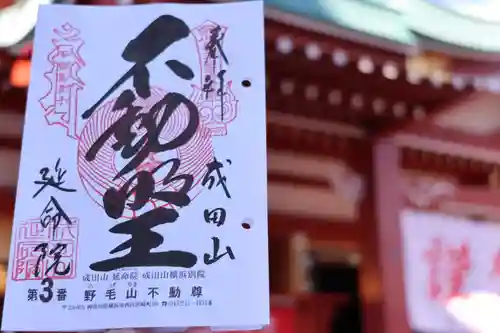 奉拝
不動尊
成田山
延命院
成田山 延命院 成田山横浜別院
のげやま
第3番 野毛山不動尊